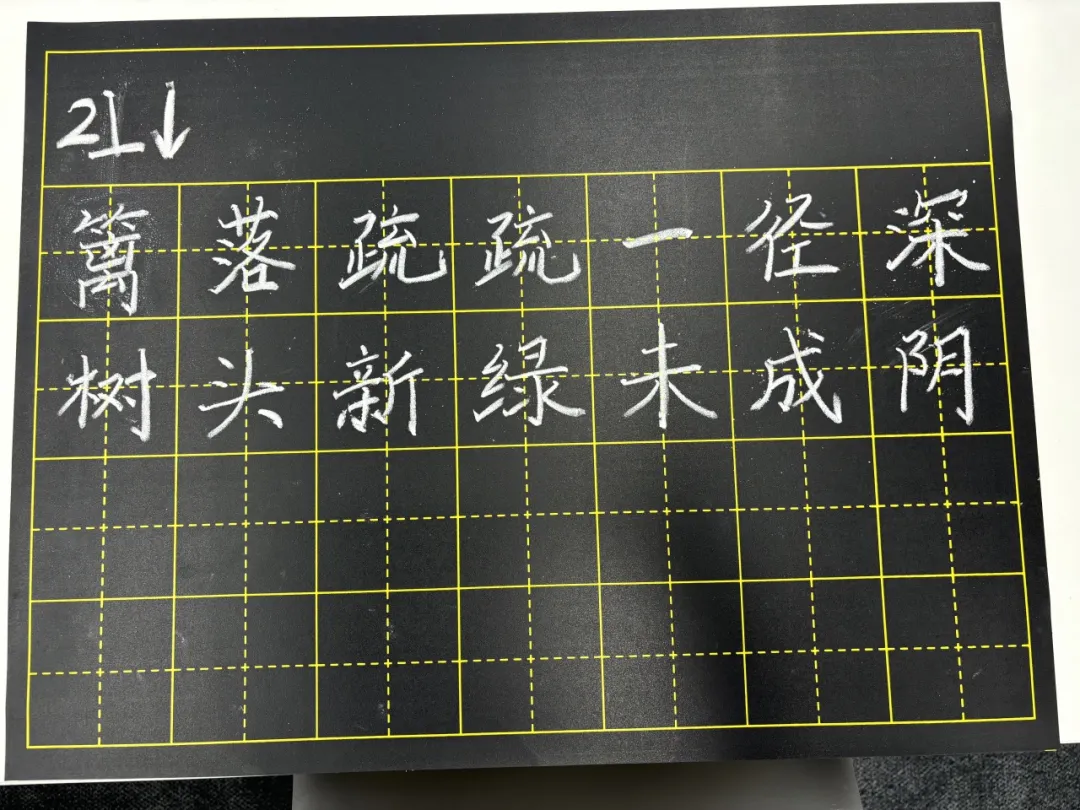 21↓
篱落疏疏一径深
树头新绿未成阴